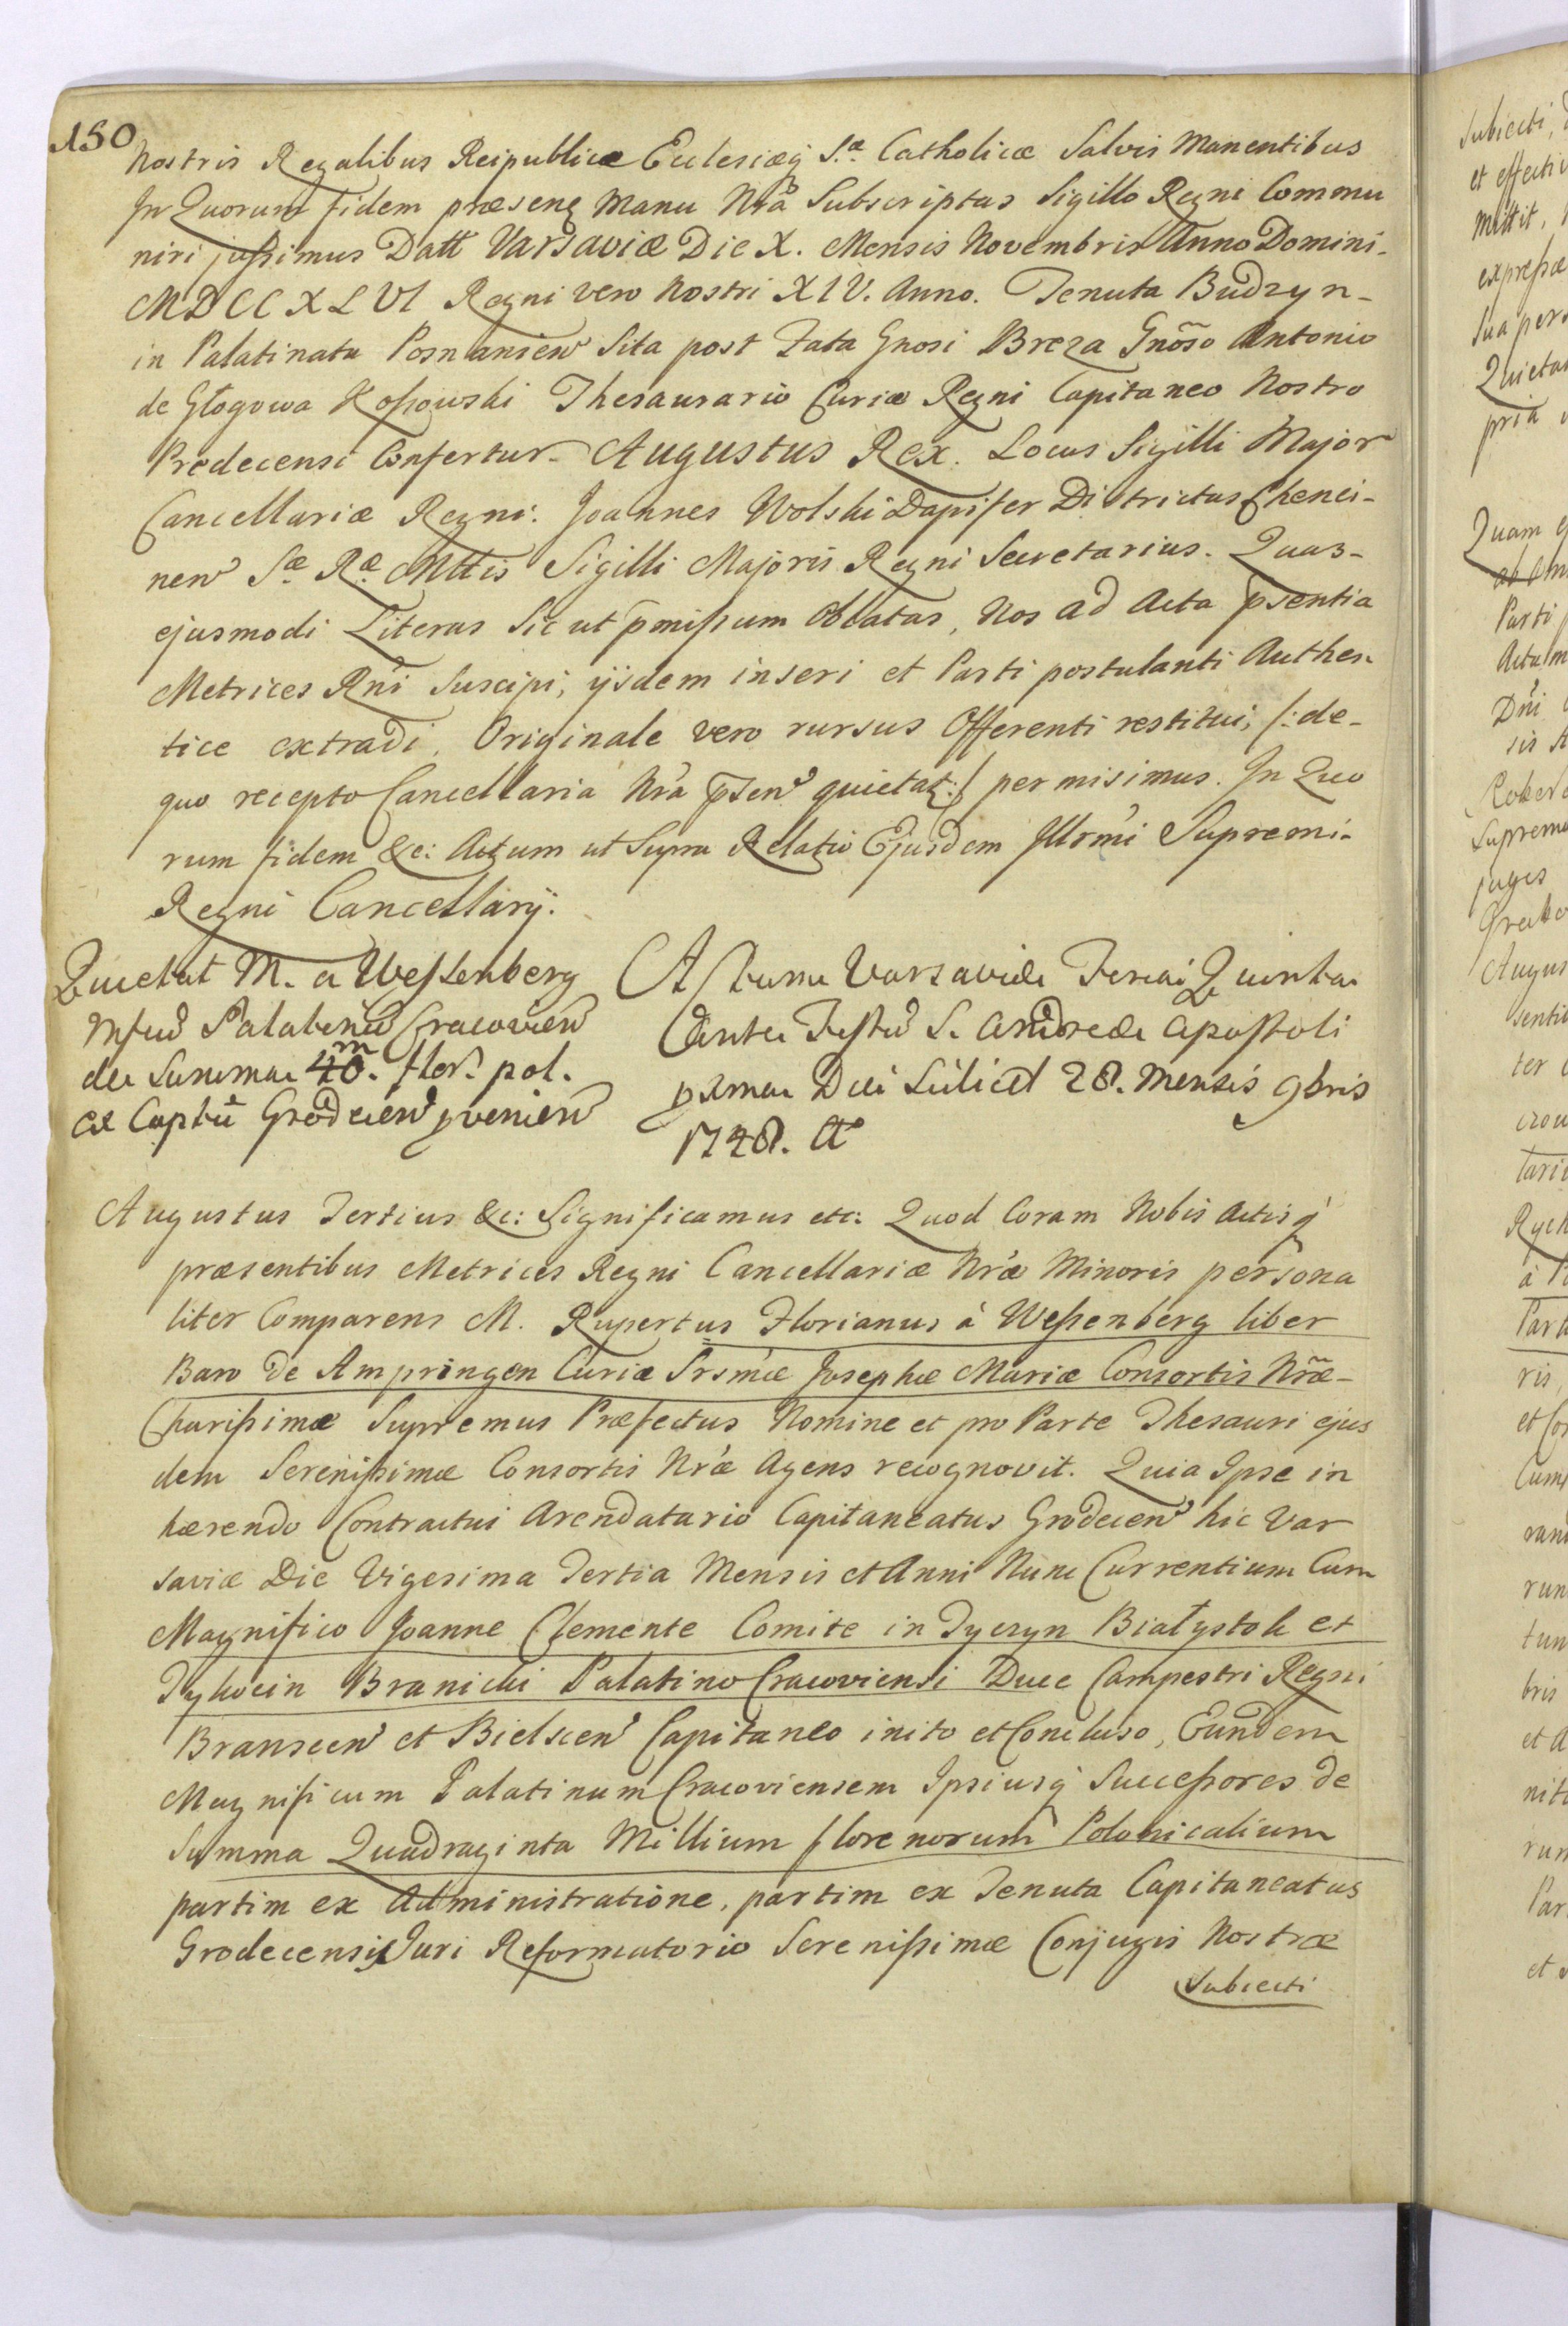 150
Nostris Regalibus Reipublicæ Eclesiæq́ S.æ Catholicæ Salvis Manentibus
In Quorum fidem præsenes Manu Nrã Subscriptas Sigillo Regni Commu
niri jussimus Datt Varsaviæ Die X. Mensis Novembris Anno Domini-
MDCCXLVI Regni vero Nostri XIV. Anno. Tenuta Budzyn-
in Palatinatu Posnanien Sita post Fata Gnosi Breza Gnõso Antonio
de Głogowa Kossowski Thesaurario Curiæ Regni Capitaneo Nostro
Predecensi Confertur. Augustus Rex. Locus Sigilli Major
Cancellariæ Regni. Joannes Wolski Dapifer Districtus Chenci-
nen Sæ Ræ Mttis Sigilli Majoris Regni Secretarius. Quas-
ejusmodi Literas Sic ut pmissum Oblatas, Nos ad Acta psentia
Metrices Rni Suscipi, ijsdem inseri et Parti postulanti Authen
tice extradi, Originale vero rursus Offerenti restitui, /: de-
quo recepto Cancellaria Nrã psen quietat :/ permisimus. In Quo
rum fidem &c: Actum ut Supra Relatio Ejusdem Illrmi Supremi-
Regni Cancellarij.
Quietat M. a Wessenberg
Mfcũ Palatinũ Cracovien
de Summa 40.m flor. pol.
ex Captũ Grodecen pvenien
Actum Varsaviæ Feria Quinta
Ante Festũ S. Andreæ Apostoli
pxima Die Scilicet 28. Mensis 9bris
1748. Ao
Augustus Tertius &c: Significamus etc: Quod Coram Nobis Actisq́
præsentibus Metrices Regni Cancellariæ Nræ Minoris persona
liter Comparens M. Rupertus Florianus à Wessenberg liber
Baro de Ampringen Curiæ Srsmæ Josephæ Mariæ Consortis Nræ-
Charissimæ Supremus Præfectus Nomine et pro Parte Thesauri ejus
dem Serenissimæ Consortis Nræ Agens recognovit. Quia Ipse in
hærendo Contractui Arendatario Capitaneatus Grodecen hic Var
saviæ Die Vigesima Tertia Mensis et Anni Nunc Currentium Cum
Magnifico Joanne Clemente Comite in Tyczyn Białystok et
Tykocin Branicki Palatino Cracoviensi Duce Campestri Regni
Branscen et Bielscen Capitaneo inito et Concluso, Eundem
Magnificum Palatinum Cracoviensem Ipsiusq́ Successores de
Summa Quadraginta Millium florenorum Polonicalium
partim ex Administratione, partim ex Tenuta Capitaneatus
Grodecensis Juri Reformatorio Serenissimæ Conjugis Nostræ
Subiecti
Subiecti,
et effectiv
mittit,
expressæ
sua pers
Quietat
pria
Quam
Parti
Acta m
Dni
sis
Suprema
juges
Augus
senti
ter
Part
ris
et Con
Cum
run
tun
bris
et A
nit
rum
Par
et